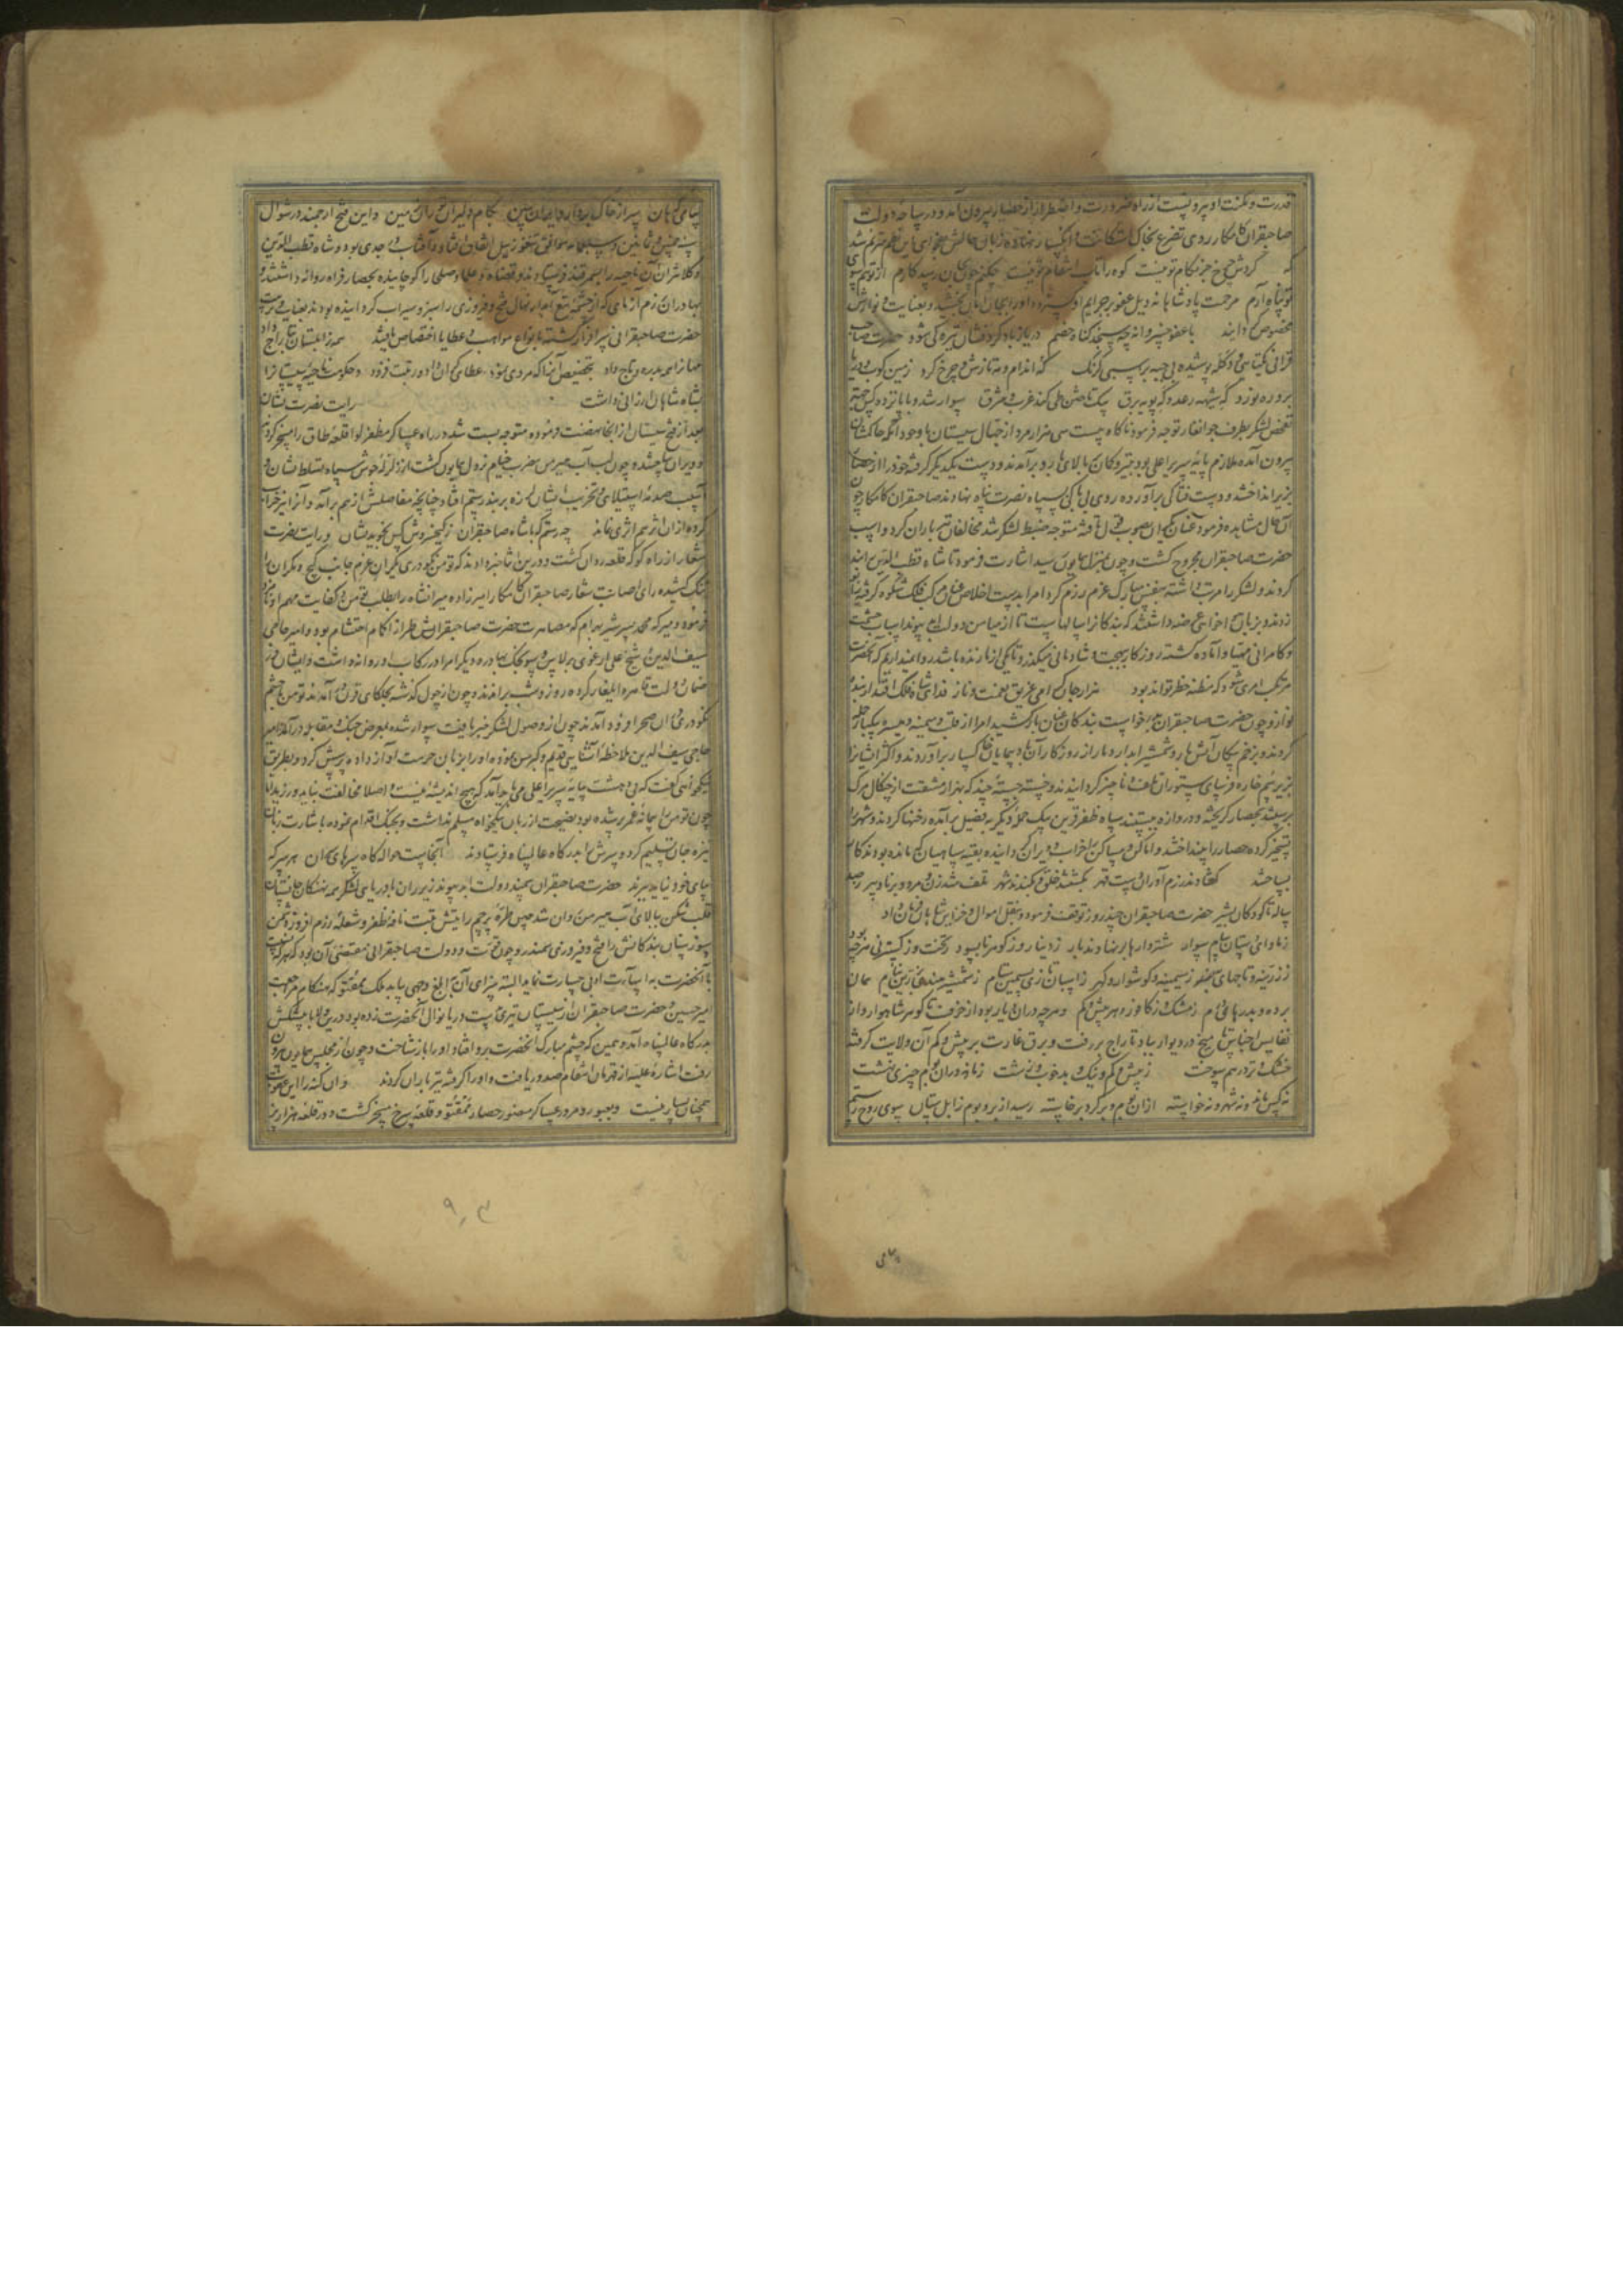 قدرت و مکنت او بیرونست از راه ضرورت و اضطرار از حصار بیرون آمد و در سایه دولت
صاحبقران کامکار روی تضرع بخاک استکانت و انکسار نهاده زبان حالش بفحوای این نظم مترنم شد
که گردش چرخ جز بکام تو نیست کوه را تاب انتقام تو نیست
تو پناه آدم مرحمت پادشاهانه ذیل عفو بر جرایم او و او را بجان امان بخشید و بعنایت و نوازش
مخصوص گردانید با عفو چه سنجد گناه خصم دریا ز باد گردفشان تیره کی شود حضرت صاحب
قرانی پوشیده بی جبه بر سمی
بر و ره نورد که شیهه رعد و که پویه برق بیک تاختن طی کند غرب و شرق سوار شد و با پانزده کس جهت
تفحص لشکر بطرف جوانغار توجه فرمود ناگاه بیست سی هزار مرد از سیستان با وجود آنکه حاکمشان
بیرون آمده ملازم پایه سریر اعلی بود تیر و کمان بالای بارو برآمدند و دست یکدیگر گرفته خود را از حصار
بزیر انداختند و دست فتاکی برآورده روی بی باکی بسپاه نصرت پناه نهادند صاحبقران کامکار چون
آن حال مشاهده فرمود عنان یکران صوب قول تافته متوجه ضبط لشکر شد مخالفان تیرباران کردند و اسب
حضرت صاحبقران مجروح گشت و چون بمنزل همایون رسید اشارت فرمود تا شاه قطب الدین را بند
کردند و لشکر را مرتب داشته بنفس مبارک عزم رزم کرد امرا بدست اخلاص عنان مرکب فلک شکوه گرفته زانو
زدند و بزبان عرضه داشتند که بندگانرا سالهاست تا از میامن دولت ابد پیوند اسباب حشمت
و کامرانی مهیا و آماده گشته روزگار ببهجت و شادمانی میگذرد تا یکی از ما زنده باشد روا نداریم که آنحضرت
مرتکب امری شود که مظنه خطر تواند بود هزار جان گرامی غریق نعمت و ناز فدای شاه فلک اقتدار بنده
نواز و چون حضرت صاحبقران بدرخواست بندگان عنان باز کشید امرا از قلب و میمنه و میسره بیکبار حمله
کردند و بزخم پیکان آتش بار و شمشیر آبدار دمار از روزگار آن بادپیمایان خاکسار برآوردند و اکثر ایشانرا
بزیر سم خاره فرسای ستوران تلف و ناچیز گردانیدند و خسته جسته چند که بهزار مشقت از چنگال مرک
برستند بحصار گریخته و دروازه ببستند سپاه ظفر قرین بیک حمله دیگر بفصیل برآمده رخنها کردند و شهر را
تسخیر کرده حصار را بینداختند و اماکن و مساکن را خراب و ویران گردانیده بقیه سپاهیان که مانده بودند کار
بساختند گشادند رزم آوران دست قهر بکشتند خلق و بکندند شهر تلف شد زن و مرد و برنا و پیر ز صد
ساله تا کودکان بشیر حضرت صاحبقران چند روز توقف فرموده و بنقل اموال و خزاین شاهان فرمان داد
شتر دارها بر نهادند بار ز دینار و ز گوهر نابسود ز تخت و ز گستردنی هرچه بود
ز زرینه و تاجهای بلور ز سیمینه و گوشوار و گهر ز اسبان تازی بسیمین ستام ز شمشیر هندی بزرین نیام همان
برده و بدرهای درم ز مشک و ز کافور و هر بیش و کم و هرچه در آن دیار بود از خزف تا گوهر شاهوار و از
نفایس اجناس تا میخ در و دیوار بباد تاراج بر رفت و برق غارت بر بیش و کم آن ولایت گرفته
خشک و تر درهم سوخت ز بیش و کم و نیک و بد خوب و زشت زمانه در آن بوم چیزی نهشت
نه کس ماند و نه شهر و نه خواسته از آن بوم و بر گرد برخاسته رسید از بر و بوم زابلستان بسوی روح رستم
پیامی
پیامی که هان سر از خاک بردار و ایران ببین بکام دلیران توران زمین و این فتح ارجمند در شوال
سنه خمس و ثمانین و سبعمایه موافق تنغوز ییل اتفاق افتاد و آفتاب در جدی بود و شاه قطب الدین
و کلانتران آن ناحیه را بسمرقند فرستادند و قضاة و علما و صلحا را کوچانیده بحصار فراه روانه داشتند و
بهادران رزم آزمای که از چشمه تیغ آبدار نهال فتح و فیروزی را سبز و سیراب گردانیده بودند بعنایت و تربیت
حضرت صاحبقرانی سرافراز گشته بانواع مواهب و عطایا اختصاص یافتند همه زابلستان بتاراج داد
سپا را همه بدره و تاج داد بتخصیص آنرا که مردی نمود عطا کرد آن را و رتبت فزود و حکومت ناحیه سیستان را
بشاه شاهان ارزانی داشت رایت نصرت نشان
بعد از فتح سیستان از آنجا نهضت فرموده متوجه بست شد در راه عساکر مظفر لوا قلعه طاق را مسخر کردند
و ویران ساختند و چون لب آب هیرمن مضرب خیام نزول همایون گشت از زلزله جوش سپاه تسلط نشان و
آسیب صدمه استیلای و تخریب ایشان لرزه بر بند رستم افتاد چنانچه مفاصلش از هم برآمد و آنرا نیز خراب
کرده از آن اثر هم اثری نماند چه رستم که با شاه صاحبقران ز کیخسروش کس نجوید نشان و رایت نصرت
شعار از راه کوکه قلعه روان گشت و در این اثنا خبر دادند که تومن نکودری یکران عزم جانب کیج و مکران را
تنک کشیده رای اصابت شعار صاحبقران کامکار امیرزاده میرانشاه را بطلب تومن و کفایت مهم او نامزد
فرموده و میرکه محمد پسر شیر بهرام که مصاهرت حضرت صاحبقرانش طراز اکمام احتشام بود و امیر حاجی
سیف الدین و شیخ علی ارغونی برلاس و سونجک بهادر و دیگر امرا در رکاب او روانه داشت و ایشان در
ضمان دولت قاهره ایلغار کرده روز و شب براندند و چون از چول گذشته بجلکای قرن درآمدند تومن با حشم
نکودری در آن صحرا فرود آمدند چون از وصول لشکر خبر یافت سوار شده بمعرض جنک و مقابله درآمد امیر
حاجی سیف الدین ملاحظه آشنایی قدیم که میان بوده او را بزبان حرمت آواز داده پرسش کرد و بطریق
نیکخواهی گفت که بی دهشت بپایه سریر اعلی می باید آمد که هیچ اندیشه نیست و اصلا مخالفت نباید ورزید اما
چون تومن را پیمانه عمر پر شده بود نصیحت از زبان نیکخواه مسلم نداشت و بجنک اقدام نموده باشارت زبان
نیزه جان تسلیم کرد و سرش را بدرگاه عالم پناه فرستادند آنجاست حواله گاه سرهای سران هر سر که
بپای خود نیاید ببرند حضرت صاحبقران سمند دولت ابد پیوند زیر ران با دریایی لشکر همه نهنگان جانستان
قلب شکن ببالای آب هیرمن روان شد سپس طره پرچم رایتش تبت نافه ظفر و شعله رزم افروز دشمن
سوز سنان بندگانش را فتح و فیروزی سمندر و چون بخت و دولت صاحبقرانی مقتضی آن بود که هر که نسبت
با آنحضرت به اساءت ادبی جسارت نماید البته سزای آن بابلغ وجهی یابد ملک ممقتو که هنگام مراجعت
امیر حسین و حضرت صاحبقران از سیستان تیری بر دست دریا نوال آنحضرت زده بود درین ولا با پیشکش
بدرگاه عالم پناه آمد و همین که چشم مبارک آنحضرت بر او افتاد او را باز شناخت و چون از مجلس همایون بیرون
رفت اشاره علیه از قهرمان انتقام صدور یافت و او را گرفته تیرباران کردند و آن کنه را این عقوبت
همچنان بسیار نیست و بعبور و مرور عساکر منصور حصار ممقتو و قلعه سرخ مسخر گشت و در قلعه هزار پز